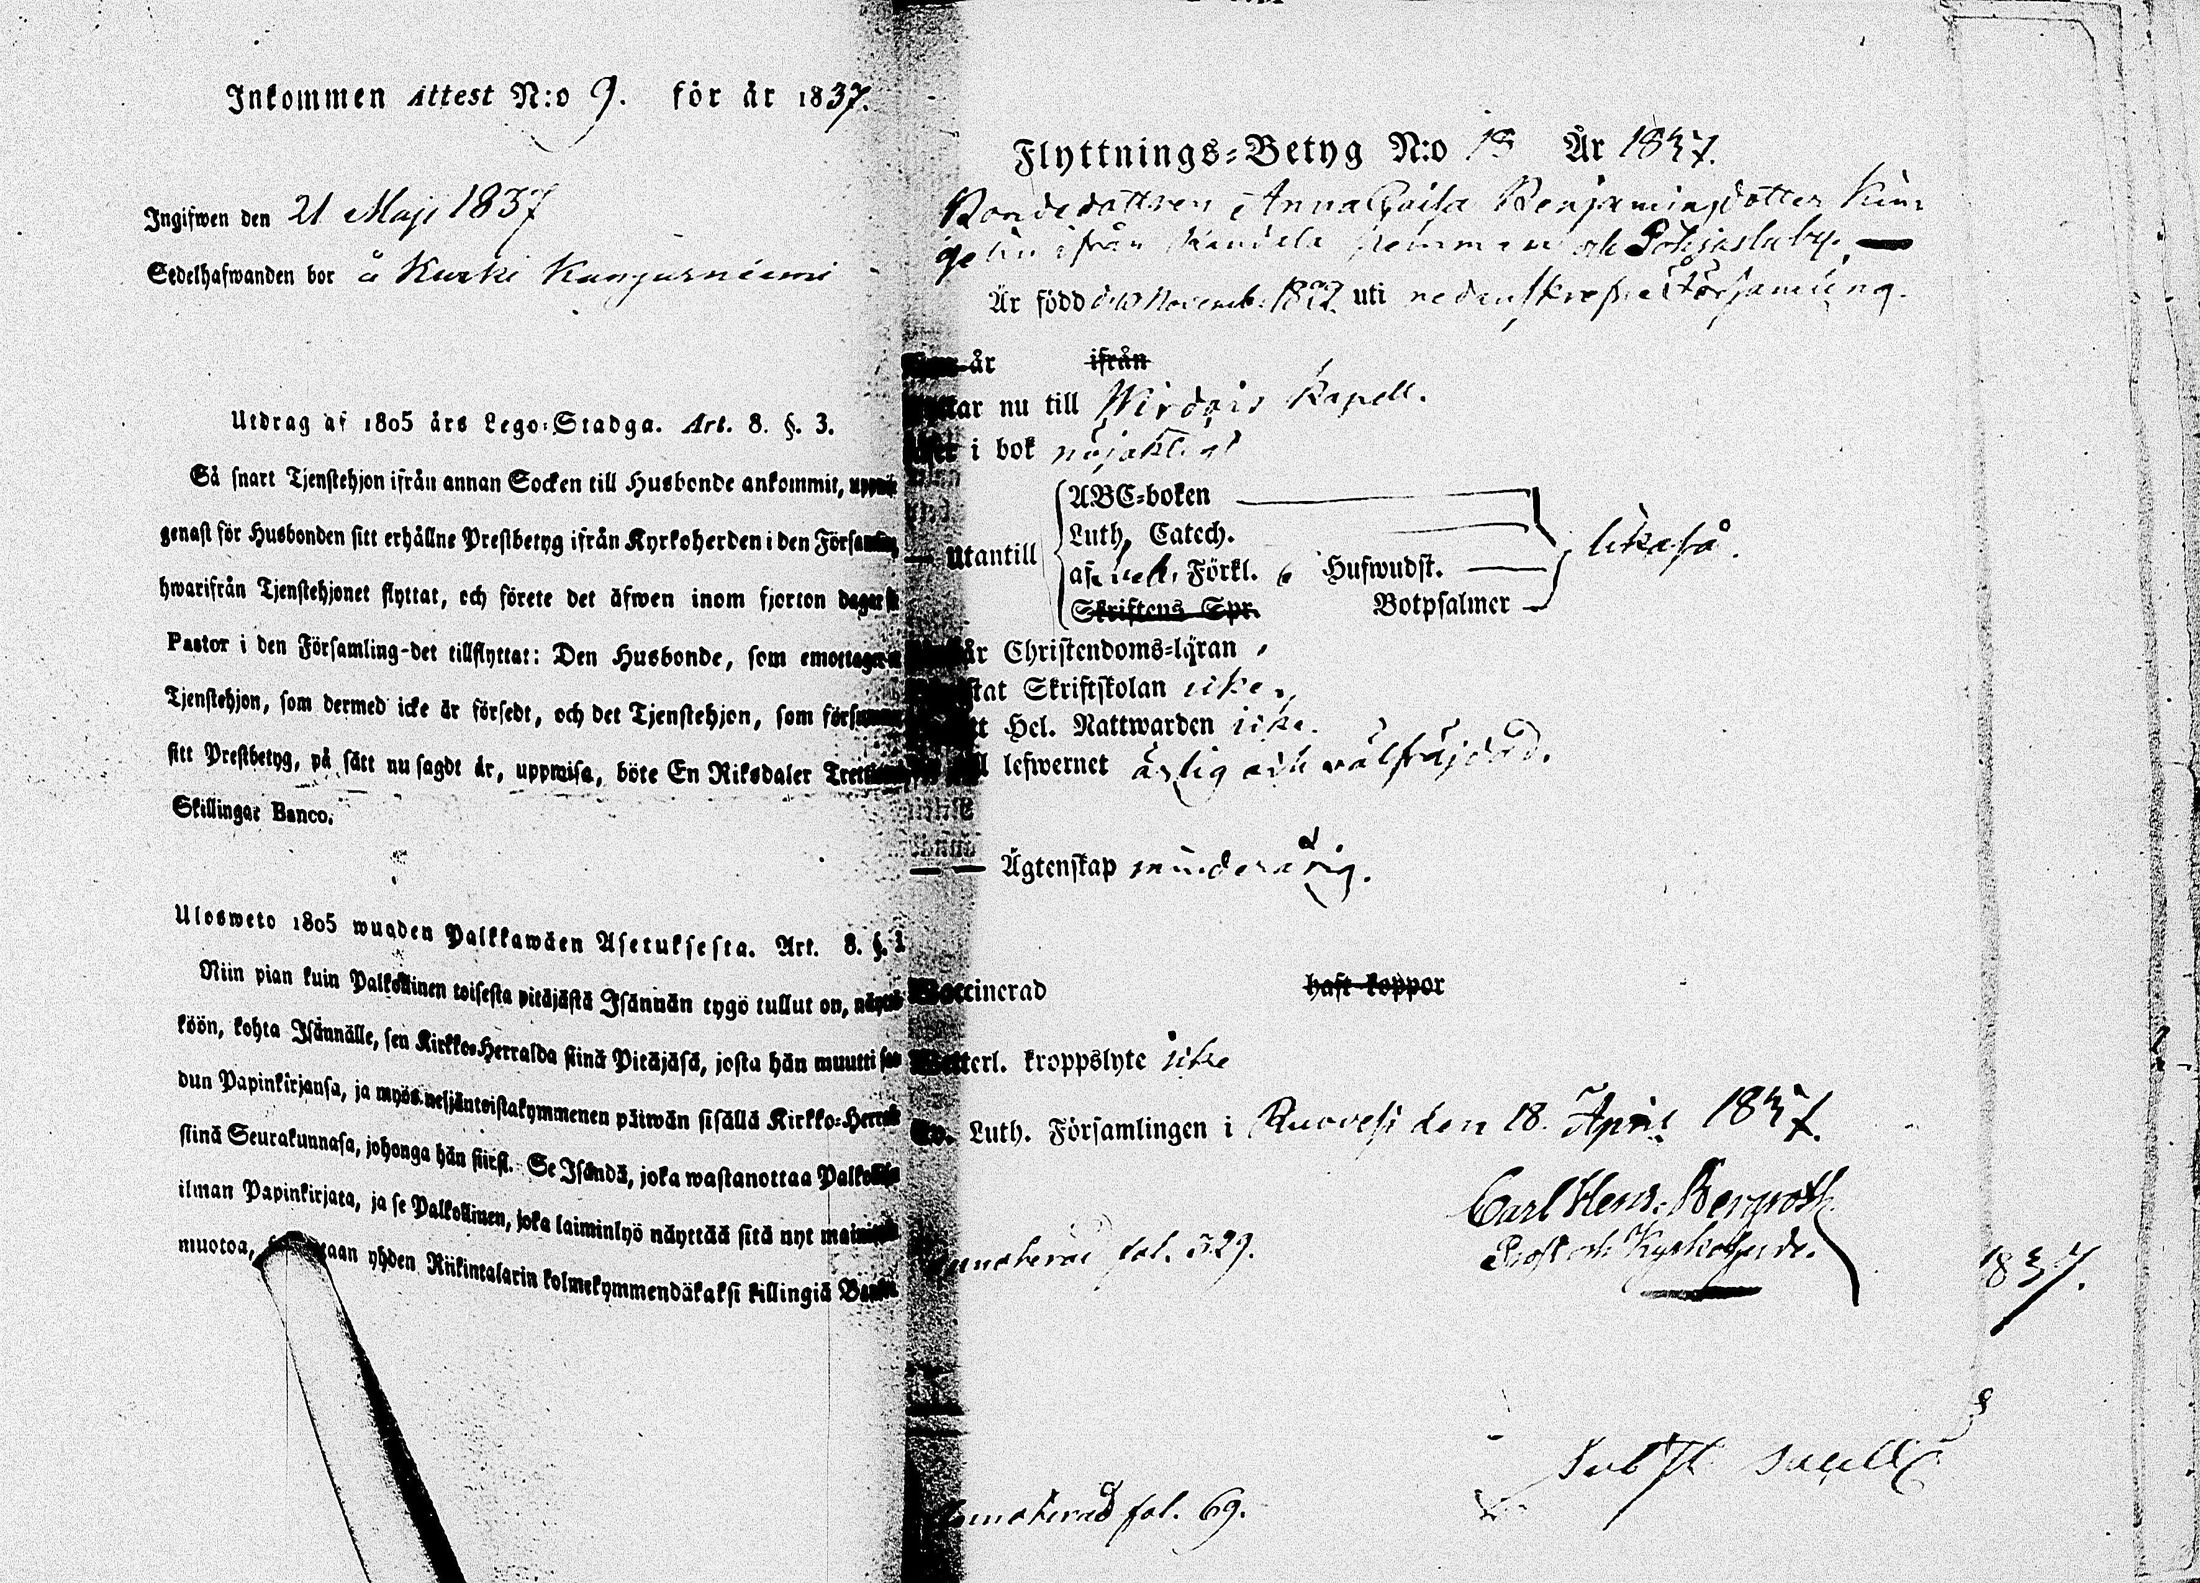 Inkommen Attest N:o 9. för år 1837.
Ingifwen den 21 Maji 1837
Sedelhafwanden bor å Kurki Kangasniemi
Utdrag af 1805 års Lego-Stadga. Art. 8. §. 3.
Så snart Tjenstehjon ifrån annan Socken till Husbonde ankommit,
genast för Husbonden sitt erhållne Prestbetyg ifrån Kyrkoherden i den
hwarifrån Tjenstehjonet flyttat, och förete det äfwen inom fjorton dagar
Pastor i den Församling det tillflyttat: Den Husbonde, som emottager
Tjenstehjon, som dermed icke är försedt, och det Tjenstehjon, som
sitt Prestbetyg, på sätt nu sagdt är, uppwisa, böte En Riksdaler
Skillingar Banco.
Ulosweto 1805 wuoden Palkkawäen Asetuksesta. Art. 8. §.
Niin pian kuin Palkollinen toisesta pitäjästä Isännän tygö tullut on,
köön, kohta Isännälle, sen Kirkko-Herralda siinä Pitäjäsä, josta hän muutti
dun Papinkirjansa, ja myös neljäntoistakymmenen päiwän sisällä Kirkko-
siinä Seurakunnasa, johonga hän siirsi. Se Isändä, joka wastanottaa
ilman Papinkirjata, ja se Palkollinen, joka laiminlyö näyttää sitä nyt
muotoa, yhden Riikintalarin kolmekymmendäkaksi killingiä
Flyttnings-Betyg N:o 18 År 1837.
Bondedottren Anna Lovisa Benjaminsdotter
ifrån hemman och Pohjaslaby.
Är född d. 10 Novemb. 1822 uti nedanskrefne Församling.
år ifrån
nu till Wirdois Kapell.
i bok nöjaktigt
Utantill
ABC-boken
Luth. Catech.
Förkl. Hufwudst.
Skriftens Spr. Botpsalmer
likaså.
Christendoms-läran
Skriftskolan icke
Hel. Nattwarden icke.
lefwernet ärlig och välfräjdad.
Ägtenskap minderårig.
haft koppor
kroppslyte icke
Luth. Församlingen i Ruovesi den 18. April 1837.
Carl Henr. Bergroth
Prost och Kyrkoherde.
fol. 329.
1837.
fol. 69.